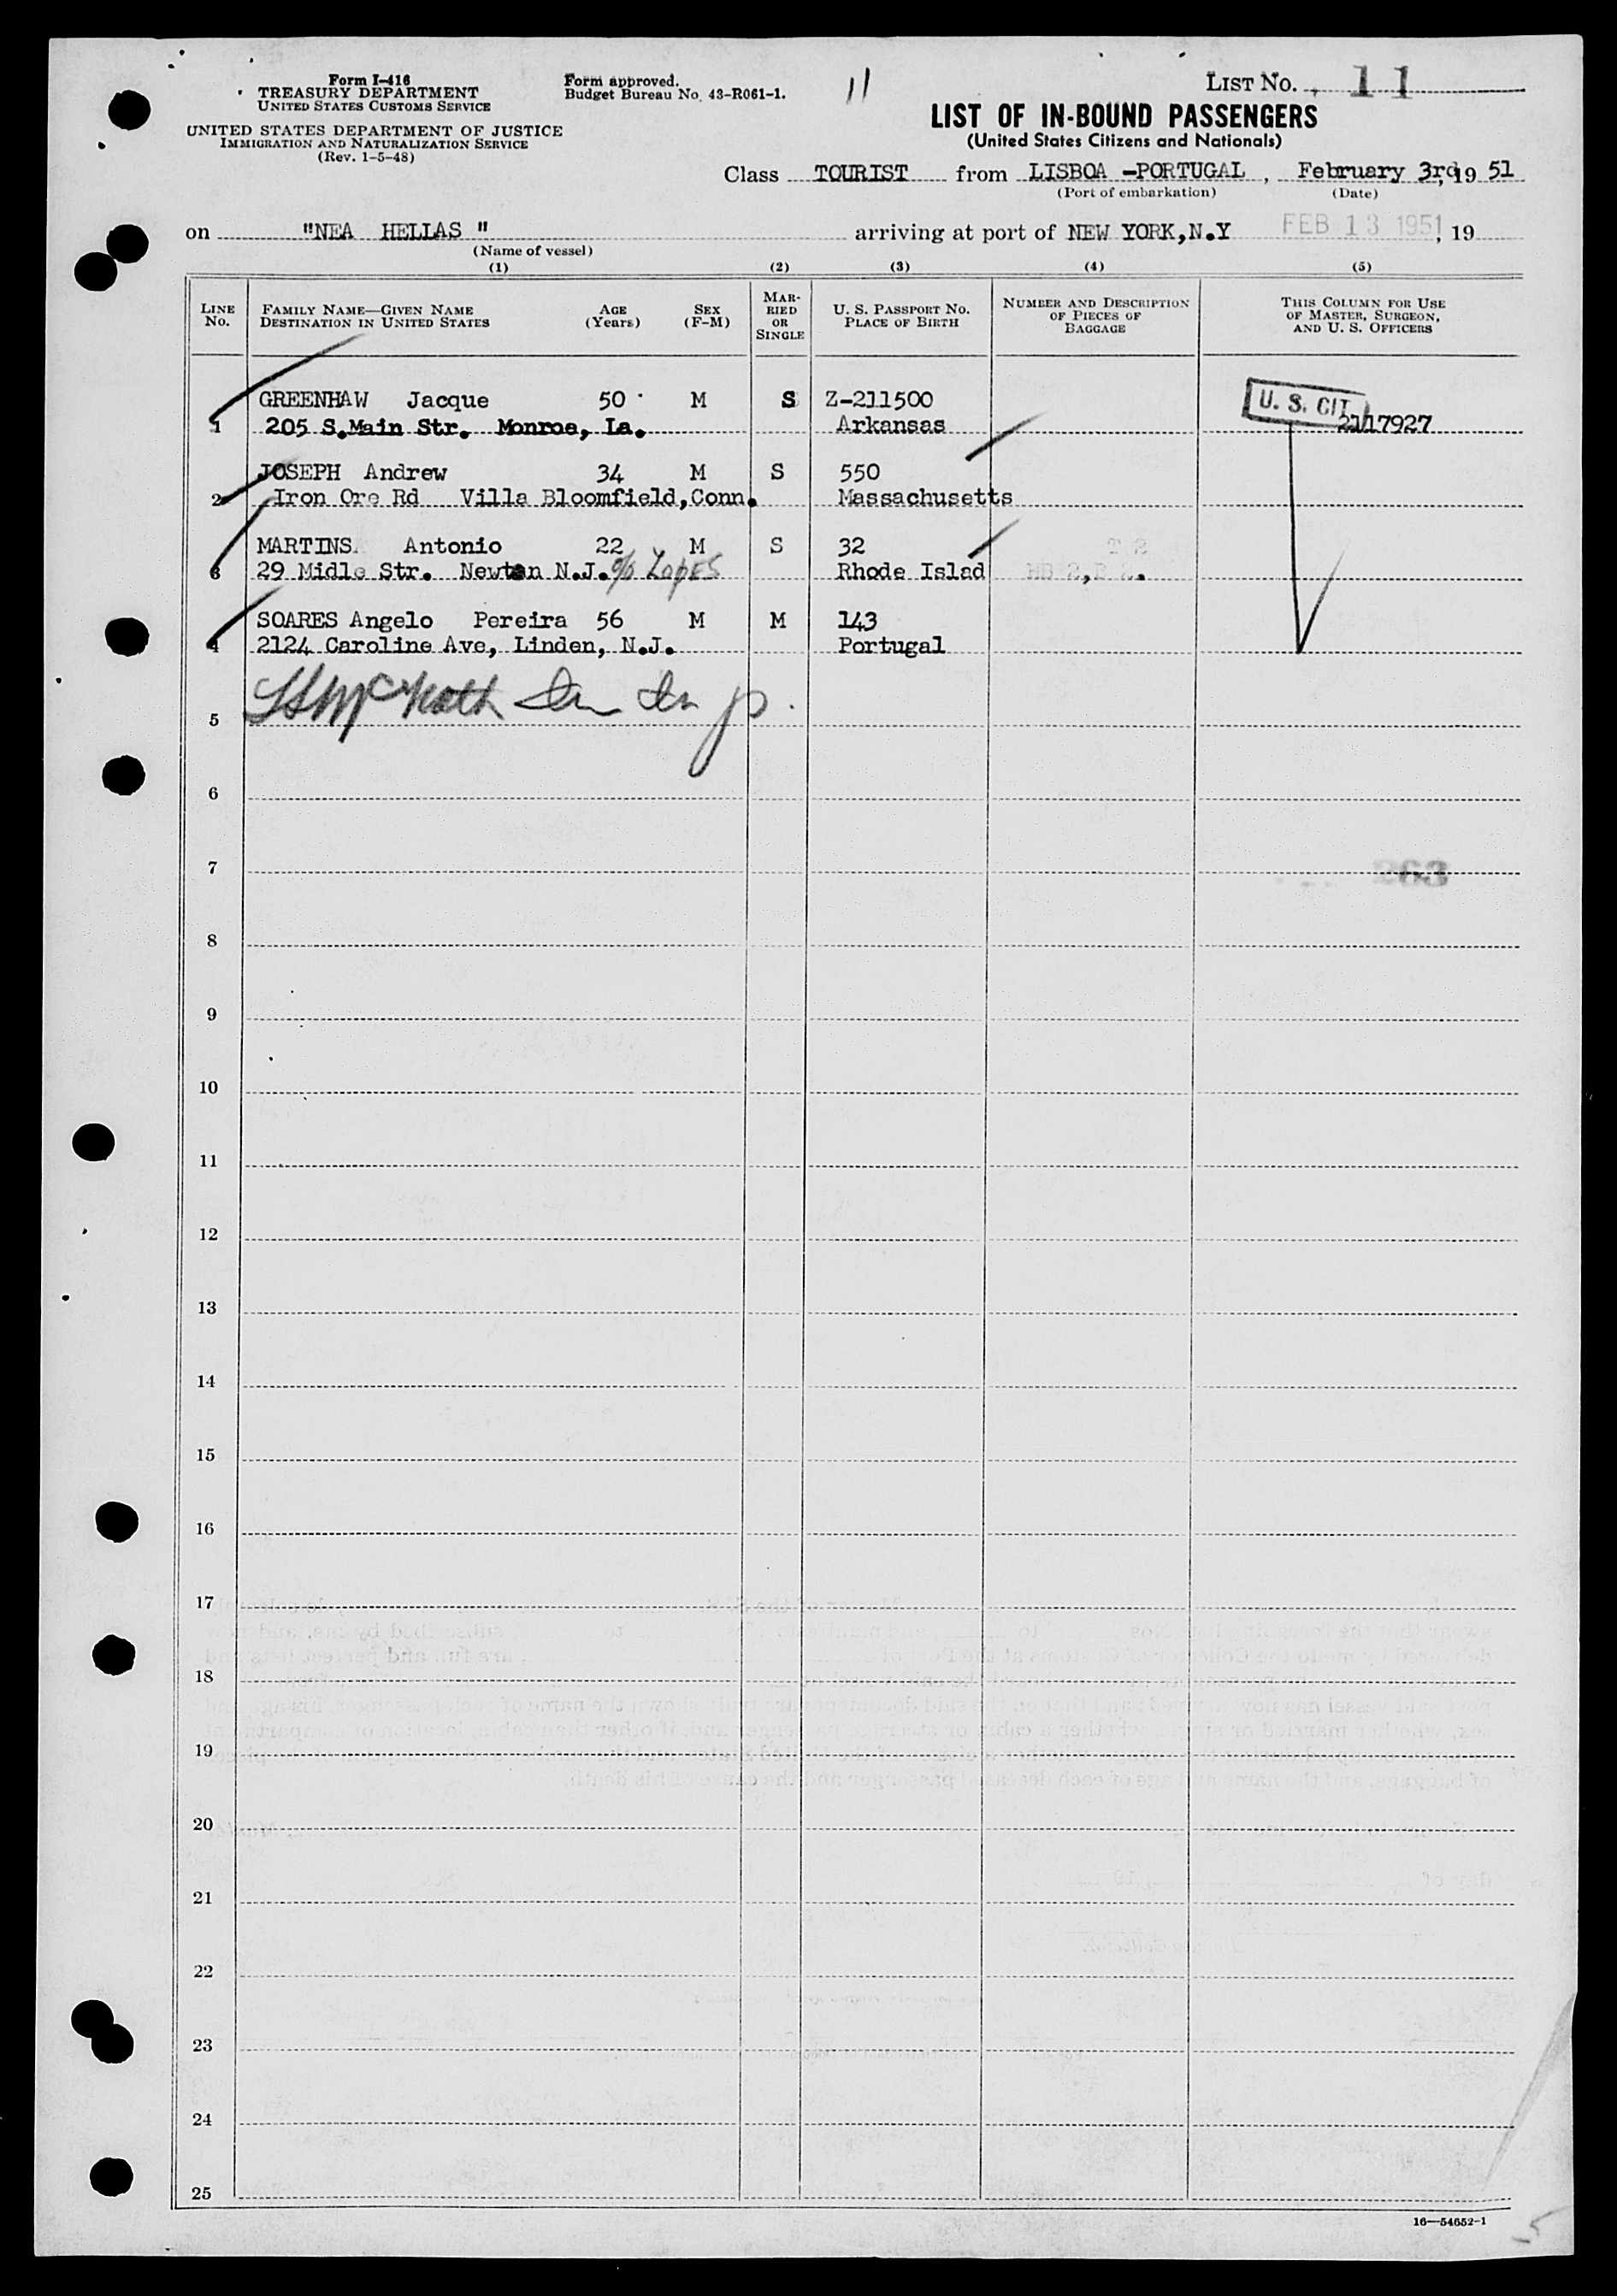 Form I-416
TREASURY DEPARTMENT
UNITED STATES CUSTOMS SERVICE
UNITED STATES DEPARTMENT OF JUSTICE
IMMIGRATION AND NATURALIZATION SERVICE
(Rev. 1-5-48)
Form approved.
Budget Bureau No. 43-R061-1.
11
LIST No. 11
LIST OF IN-BOUND PASSENGERS
(United States Citizens and Nationals)
Class TOURIST from LISBOA -PORTUGAL, February 3rd, 19 51
(Port of embarkation) (Date)
on "NEA HELLAS " arriving at port of NEW YORK,N.Y FEB 13 1951, 19
(Name of vessel)
(1) (2) (3) (4) (5)
LINE No. FAMILY NAME—GIVEN NAME DESTINATION IN UNITED STATES AGE (Years) SEX (F-M) MARRIED OR SINGLE U. S. PASSPORT No. PLACE OF BIRTH NUMBER AND DESCRIPTION OF PIECES OF BAGGAGE THIS COLUMN FOR USE OF MASTER, SURGEON, AND U. S. OFFICERS
GREENHAW Jacque 50 M S Z-211500 U. S. CIT
1 205 S.Main Str. Monroe, La. Arkansas 21/17927
JOSEPH Andrew 34 M S 550
2 Iron Ore Rd Villa Bloomfield,Conn. Massachusetts
MARTINS Antonio 22 M S 32 T 2
3 29 Midle Str. Newtan N.J. c/o Lopes Rhode Islad
SOARES Angelo Pereira 56 M M 143
4 2124 Caroline Ave, Linden, N.J. Portugal
5
6
7 63
8
9
10
11
12
13
14
15
16
17
18
19
20
21
22
23
24
25
16—54652-1
5